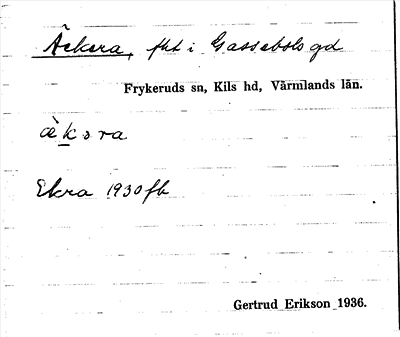 Äckera, fht i Gassebols gd
Frykeruds sn, Kils hd, Värmlands län.
ækɜra
Ekra 1930 fb
Gertrud Erikson 1936.